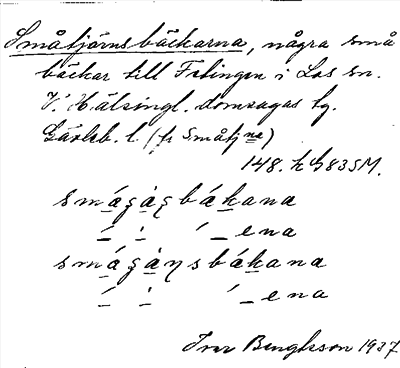 Småtjärnsbäckarna, några små
bäckar till Felingen i Los sn.
V. Hälsingl. domsagas tg.
Gävleb. l. (fr Småtj na)
148. h G 835 M.
s m á ʂ à ɳ b á k a n a
e n a
s m á ʂ à ɳ s b á k a n a
e n a
Ivar Bengtsson 1937